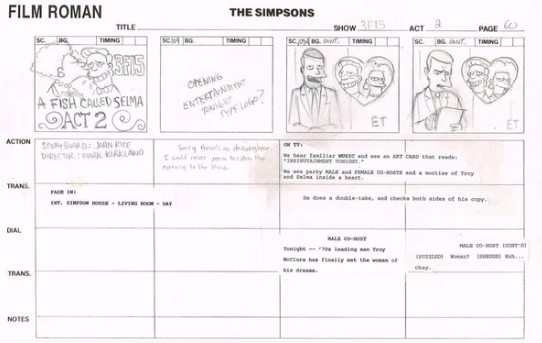 FILM ROMAN
THE SIMPSONS
TITLE
SHOW 3F15
ACT 2
PAGE 60
SC. BG. TIMING
SC. BG. TIMING
SC. BG. CONT. TIMING
SC. BG. CONT. TIMING
3F15
A FISH CALLED SELMA
ACT 2
OPENING
ENTERTAINMENT
TONIGHT
TYPE LOGO?
ET
ET
ACTION
STORYBOARD: JOHN RICE
DIRECTOR: MARK KIRKLAND
Sorry there's no drawing here.
I could never seem to catch the
opening to the show.
ON TV:
We hear familiar MUSIC and see an ART CARD that reads:
"INSINUTAINMENT TONIGHT."
We see perky MALE and FEMALE CO-HOSTS and a mortise of Troy
and Selma inside a heart.
TRANS.
FADE IN:
INT. SIMPSON HOUSE - LIVING ROOM - DAY
He does a double-take, and checks both sides of his copy.
DIAL
MALE CO-HOST
Tonight -- '70s leading man Troy
McClure has finally met the woman of
his dreams.
MALE CO-HOST (CONT'D)
(PUZZLED) Woman? (SHRUGS) Huh...
Okay.
TRANS.
NOTES